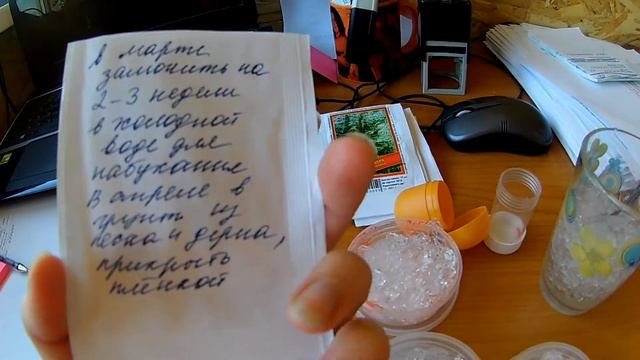 в марте
замочить на
2-3 недели
в холодной
воде для
набухания
В апреле в
грунт из
песка и дёрна,
прикрыть
плёнкой